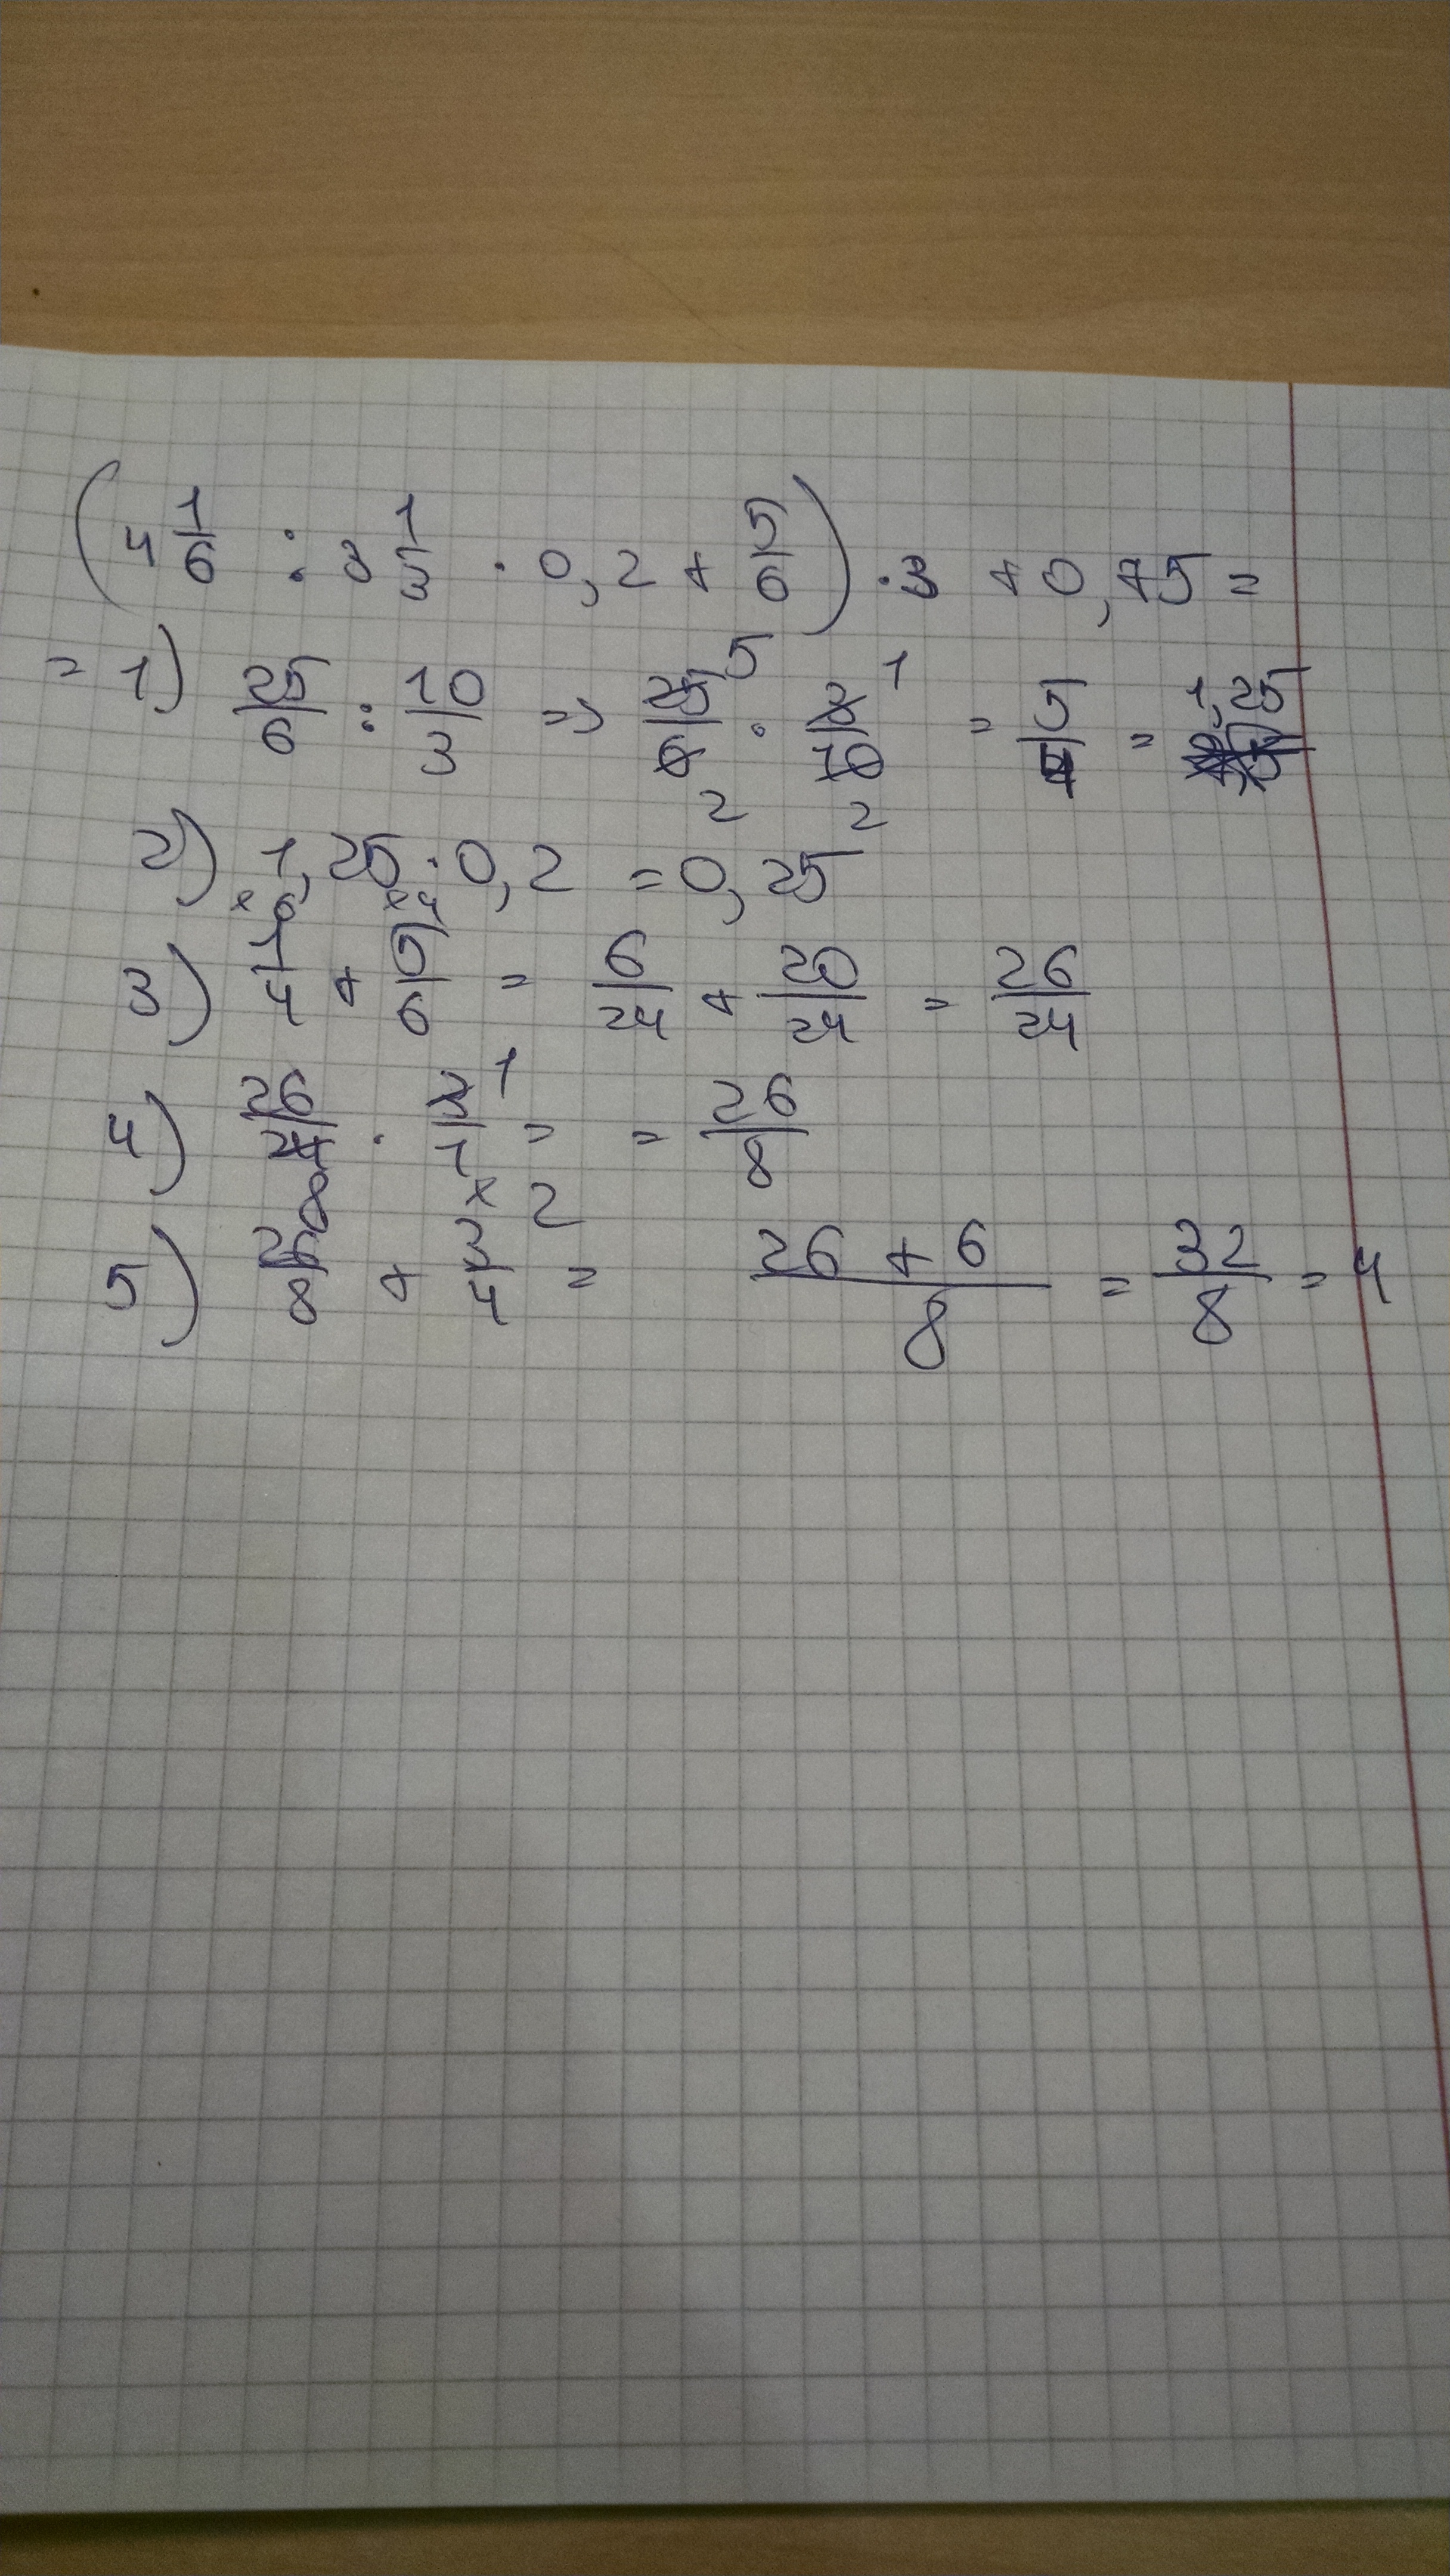 (4 1/6 : 3 1/3 · 0,2 + 5/6) · 3 + 0,75 =
= 1) 25/6 : 10/3 => 25/6 · 3/10 = 5/4 = 1,25
5 1
2 2
2) 1,25 · 0,2 = 0,25
x6 x4
3) 1/4 + 5/6 = 6/24 + 20/24 = 26/24
4) 26/24 · 3/1 = = 26/8
1
8
x 2
5) 26/8 + 3/4 = 26 + 6/8 = 32/8 = 4